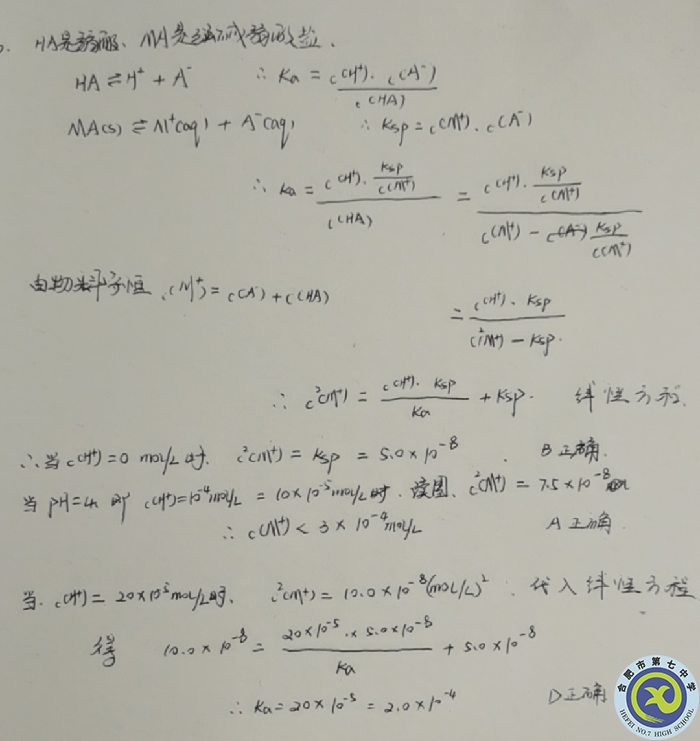 HA是弱酸、MA是强碱弱酸盐.
HA ⇌ H⁺ + A⁻ ∴ Ka = c(H⁺)·c(A⁻) / c(HA)
MA(s) ⇌ M⁺(aq) + A⁻(aq) ∴ Ksp = c(M⁺)·c(A⁻)
∴ Ka = c(H⁺)·Ksp/c(M⁺) / c(HA) = c(H⁺)·Ksp/c(M⁺) / c(M⁺) - Ksp/c(M⁺)
由物料守恒 c(M⁺) = c(A⁻) + c(HA)
= c(H⁺)·Ksp / c²(M⁺) - Ksp.
∴ c²(M⁺) = c(H⁺)·Ksp / Ka + Ksp. 线性方程.
∴当 c(H⁺)=0 mol/L时. c²(M⁺) = Ksp = 5.0×10⁻⁸. B正确.
当pH=4 即 c(H⁺)=10⁻⁴mol/L = 10×10⁻⁵mol/L时. 读图. c²(M⁺) = 7.5×10⁻⁸
∴ c(M⁺) < 3×10⁻⁴mol/L A正确
当. c(H⁺) = 20×10⁻⁵mol/L时. c²(M⁺) = 10.0×10⁻⁸(mol/L)². 代入线性方程
得 10.0×10⁻⁸ = 20×10⁻⁵·×5.0×10⁻⁸ / Ka + 5.0×10⁻⁸
∴ Ka = 20×10⁻⁵ = 2.0×10⁻⁴ D正确
合肥市第七中学
HEFEI NO.7 HIGH SCHOOL